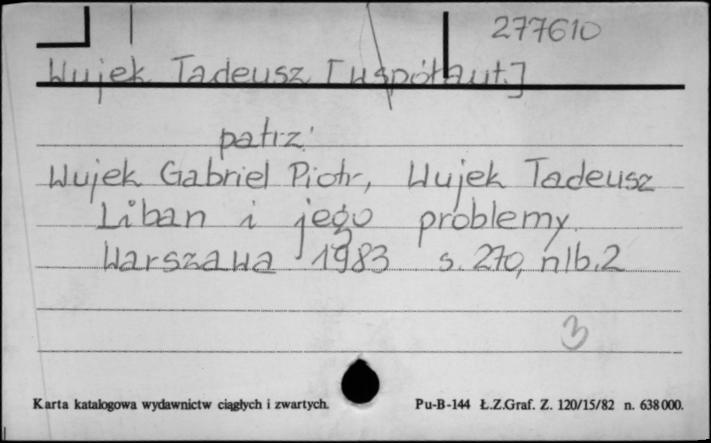 277610
Wujek Tadeusz [współaut.]
patrz:
Wujek Gabriel Piotr, Wujek Tadeusz
Liban i jego problemy.
Warszawa 1983 s. 270, nlb. 2
3
Karta katalogowa wydawnictw ciągłych i zwartych. Pu-B-144 Ł.Z.Graf. Z. 120/15/82 n. 638000.